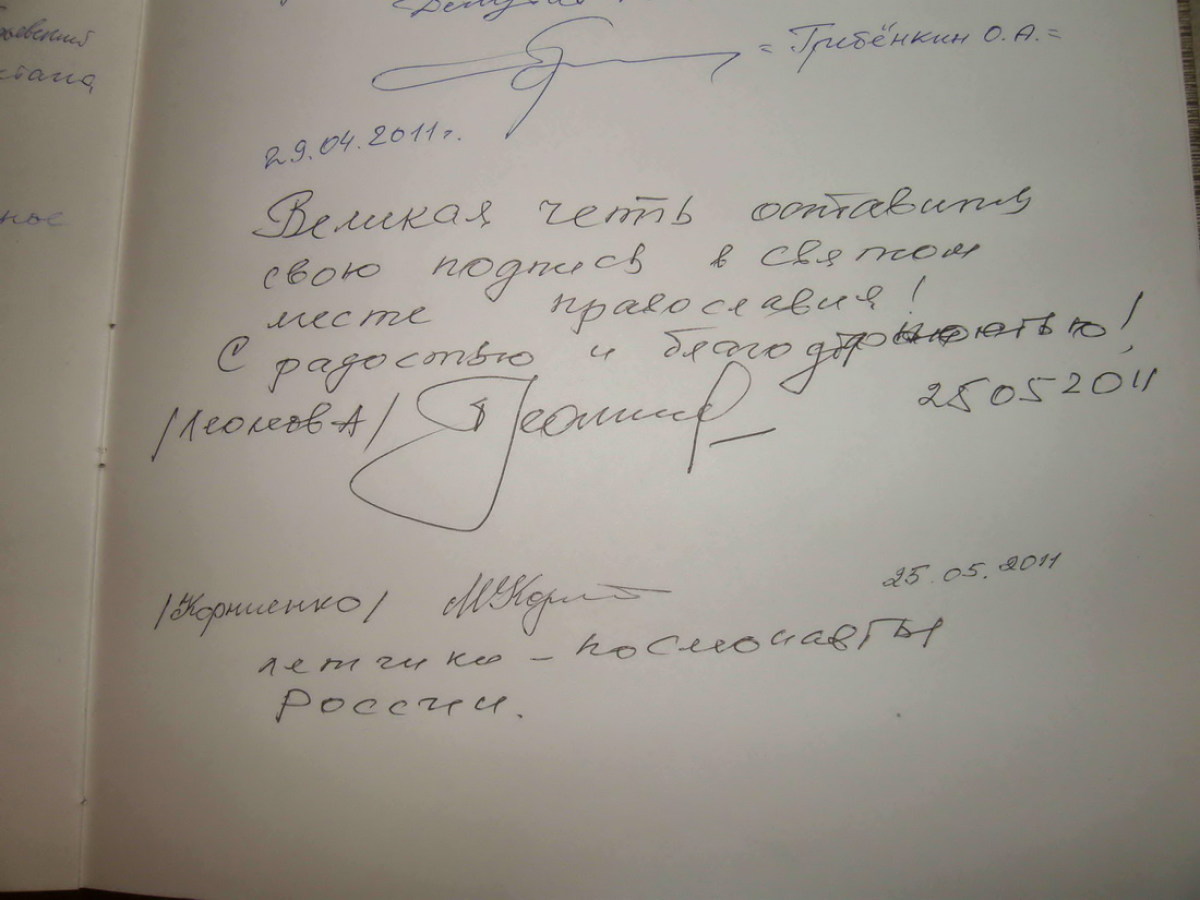 = Грибёнкин О.А.=
29.04.2011г.
Великая честь оставить
свою подпись в святом
месте православия!
С радостью и благодарностью!
/Леонов А/
25 05 2011
/Корниенко/ МКорн
25.05.2011
летчики - космонавты
России.
стана
ное